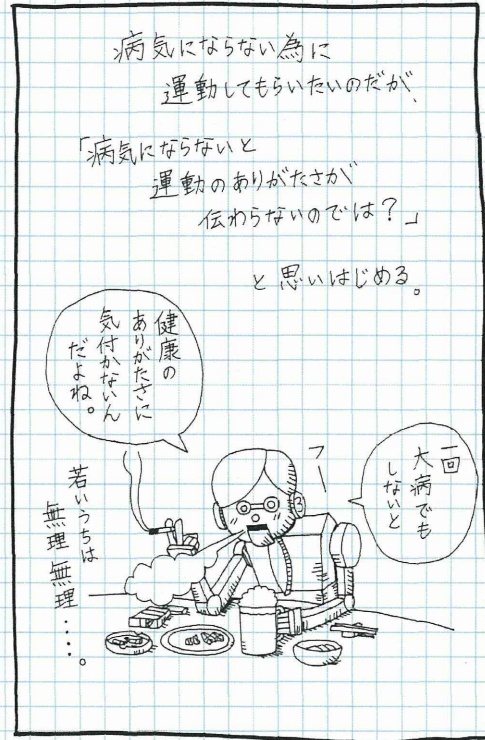 病気にならない為に
運動してもらいたいのだが、
「病気にならないと
運動のありがたさが
伝わらないのでは？」
と思いはじめる。
一回
大病でも
しないと
フー
健康の
ありがたさに
気付かないん
だよね。
若いうちは
無理無理・・・・。